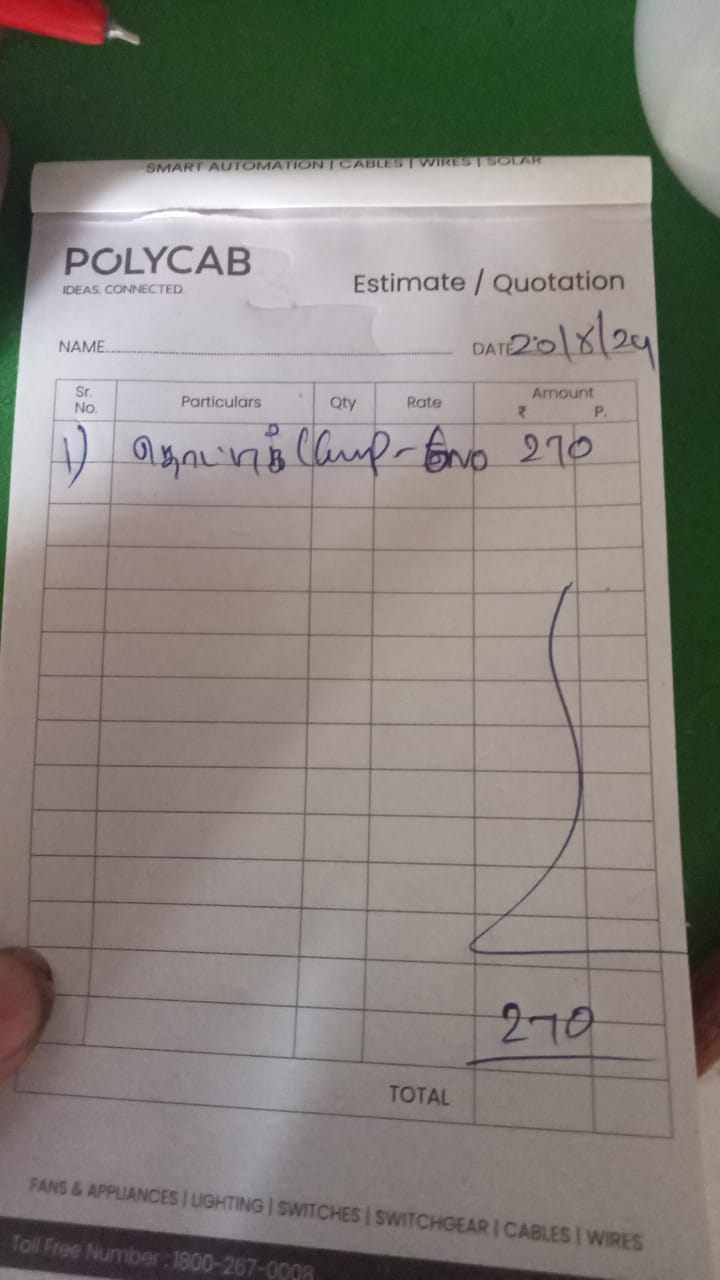 SMART AUTOMATION | CABLES | WIRES | SOLAR
POLYCAB
IDEAS. CONNECTED.
Estimate / Quotation
NAME DATE 20/8/24
Sr. No. Particulars Qty Rate Amount ₹ P.
1) Clamp - 6no 270
270
TOTAL
FANS & APPLIANCES | LIGHTING | SWITCHES | SWITCHGEAR | CABLES | WIRES
Toll Free Number : 1800-267-0008